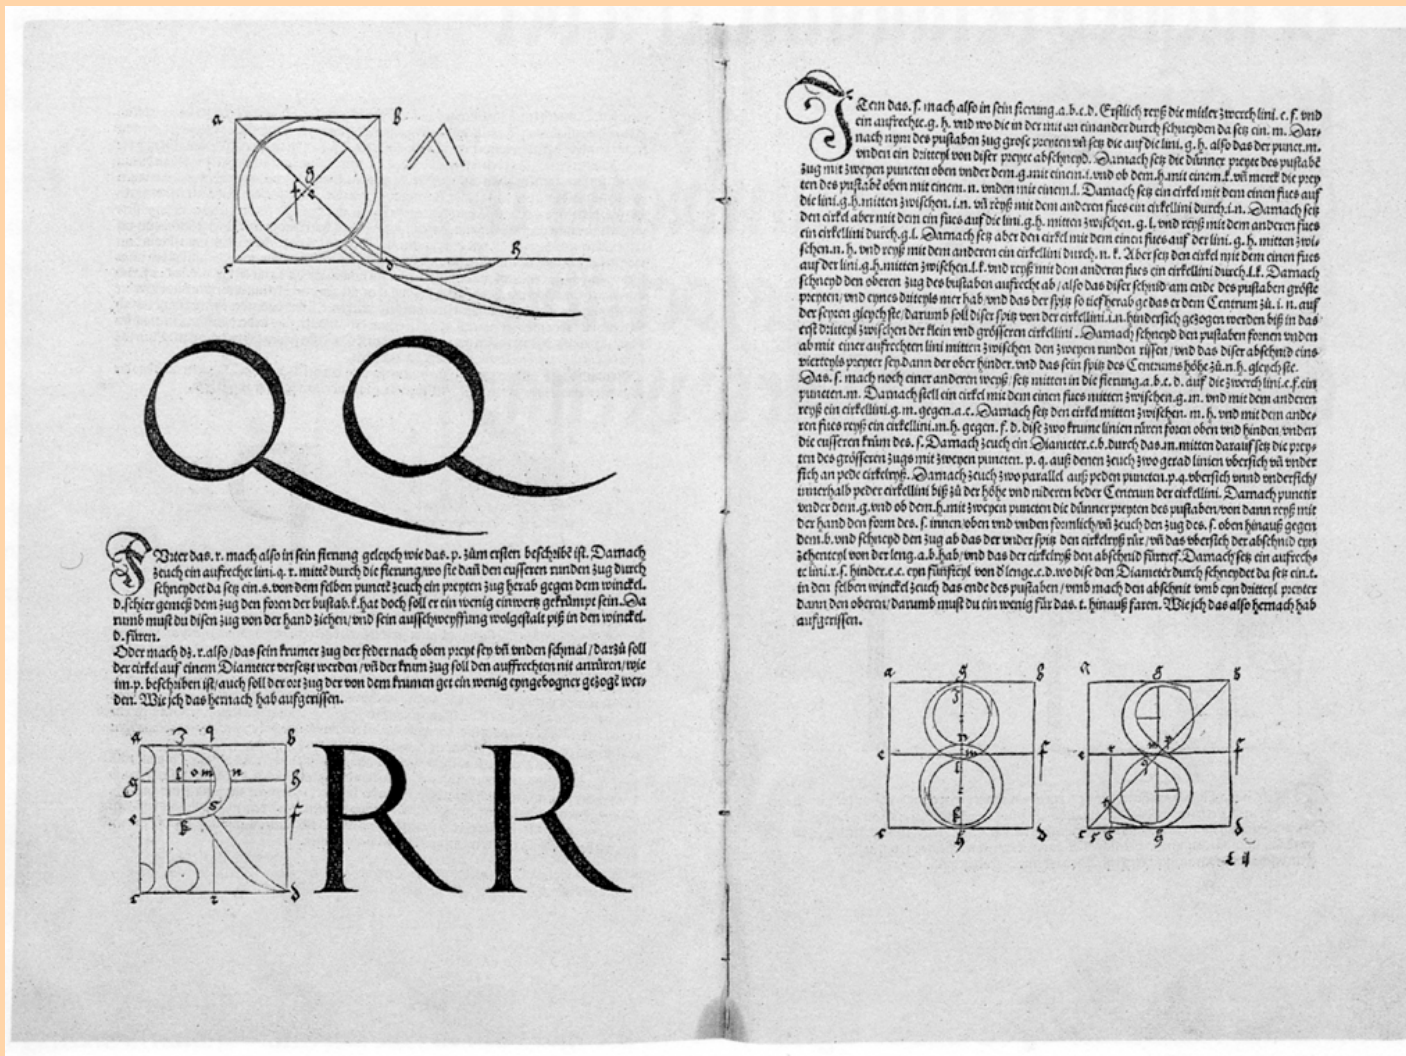 a b
f g e
c d h
Q Q
Vnter das. r. mach also in sein fierung geleych wie das. p. zům ersten beschribē ist. Darnach
zeuch ein aufrechte lini. q. r. mittē durch die fierung/wo sie dañ den eusseren runden zug durch
schneydet da setz ein. s. von dem selben punctē zeuch ein preyten zug herab gegen dem winckel.
d. schier gemeß dem zug den foren der bustab. k. hat doch soll er ein wenig einwertz gekrümpt sein. Da
rumb must du disen zug von der hand ziehen/vnd sein ausschweyffung wolgestalt piß in den winckel.
d. füren.
Oder mach dz. r. also/das sein krumer zug der feder nach oben preyt sey vñ vnden schmal/darzů soll
der cirkel auf einem Diameter versetzt werden/vñ der krum zug soll den auffrechten nit anrüren/wie
im. p. beschriben ist/auch soll der ort zug der von dem krumen get ein wenig eyngebogner gezogē wer-
den. Wie jch das hernach hab aufgerissen.
R R R
ITem das. s. mach also in sein fierung. a. b. c. d. Erstlich reyß die mitler zwerch lini. e. f. vnd
ein aufrechte. g. h. vnd wo die in der mit an einander durch schneyden da setz ein. m. Dar-
nach nym des pustaben zug grose preyten vñ setz die auf die lini. g. h. also das der punct. m.
vnden ein dritteyl von diser preyte abschneyd. Darnach setz die dünner preyte des pustabē
zug mit zweyen puncten oben vnder dem. g. mit einem. i. vnd ob dem. h. mit einem. k. vñ merck die prey
ten des pustabē oben mit einem. n. vnden mit einem. l. Darnach setz ein cirkel mit dem einen fues auf
die lini. g. h. mitten zwischen. i. n. vñ reyß mit dem anderen fues ein cirkellini durch. i. n. Darnach setz
den cirkel aber mit dem ein fues auf die lini. g. h. mitten zwischen. g. l. vnd reyß mit dem anderen fues
ein cirkellini durch. g. l. Darnach setz aber den cirkel mit dem einen fues auf der lini. g. h. mitten zwi-
schen. n. h. vnd reyß mit dem anderen ein cirkellini durch. n. k. Aber setz den cirkel mit dem einen fues
auf der lini. g. h. mitten zwischen. l. k. vnd reyß mit dem anderen fues ein cirkellini durch. l. k. Darnach
schneyd den oberen zug des bustaben aufrecht ab/also das diser schnid am ende des pustaben gröste
preyten/vnd eynes driteyls mer hab/vnd das der spitz so tief herab ge das er dem Centrum zů. i. n. auf
der seyten gleych ste/darumb soll diser spitz von der cirkellini. i. n. hindersich gezogen werden biß in das
erst dritteyl zwischen der klein vnd grösseren cirkellini. Darnach schneyd den pustaben fornen vnden
ab mit einer aufrechten lini mitten zwischen den zweyen runden rissen/vnd das diser abschnid eins
vierteyls preyter sey dann der ober hinder. vnd das sein spitz des Centrums höhe zů. n. h. gleych ste.
Das. s. mach noch einer anderen weyß/setz mitten in die fierung. a. b. c. d. auf die zwerch lini. e. f. ein
puncten. m. Darnach stell ein cirkel mit dem einen fues mitten zwischen. g. m. vnd mit dem anderen
reyß ein cirkellini. g. m. gegen. a. e. Darnach setz den cirkel mitten zwischen. m. h. vnd mit dem ande-
ren fues reyß ein cirkellini. m. h. gegen. f. d. dise zwo krume linien rüren foren oben vnd hinden vnden
die eusseren krüm des. s. Darnach zeuch ein Diameter. c. b. durch das. m. mitten darauf setz die prey-
ten des grösseren zugs mit zweyen puncten. p. q. auß denen zeuch zwo gerad linien vbersich vñ vnder
sich an pede cirkelryß. Darnach zeuch zwo parallel auß peden puncten. p. q. vbersich vnnd vndersich/
innerhalb peder cirkellini biß zů der höhe vnd nideren beder Centrum der cirkellini. Darnach punctir
vnder dem. g. vnd ob dem. h. mit zweyen puncten die dünner preyten des pustaben/von dann reyß mit
der hand den form des. s. innen/oben vnd vnden formlich/vñ zeuch den zug des. s. oben hinauß gegen
dem. b. vnd schneyd den zug ab das der vnder spitz den cirkelryß rür/vñ das vbersich der abschnid eyn
zehenteyl von der leng. a. b. hab/vnd das der cirkelryß den abschnid fürtref. Darnach setz ein aufrech-
te lini. r. s. hinder. e. c. eyn fünfteyl von d' lenge. c. d. wo dise den Diameter durch schneydet da setz ein. t.
in den selben winckel zeuch das ende des pustaben/vmb mach den abschnit vmb eyn dritteyl preyter
dann den oberen/darumb must du ein wenig für das. t. hinauß faren. Wie jch das also hernach hab
aufgerissen.
a g b
e f
c h d